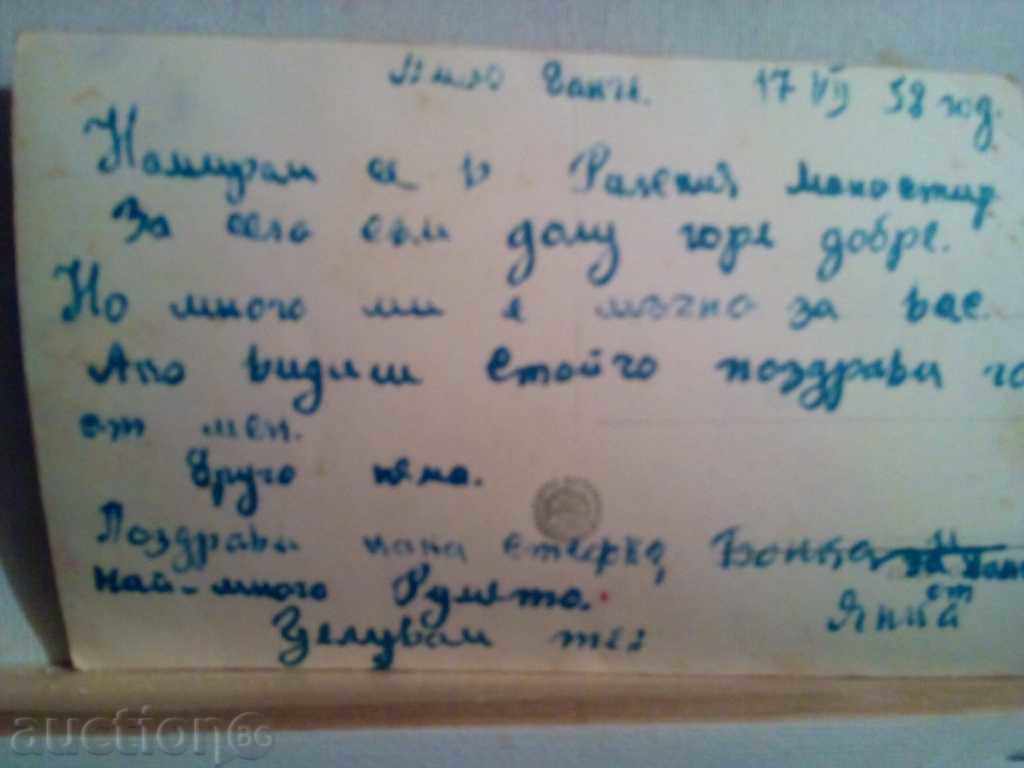 Мило Ванче. 17 VII 58 год.
Намирам се в Рилския манастир
За сега съм долу горе добре.
Но много ми е мъчно за вас.
Ако видиш Стойчо поздрави го
от мен.
Друго няма.
Поздрави кака Стефка, Бонка и
най-много Румето. от
Целувам те: Янка
auction BG